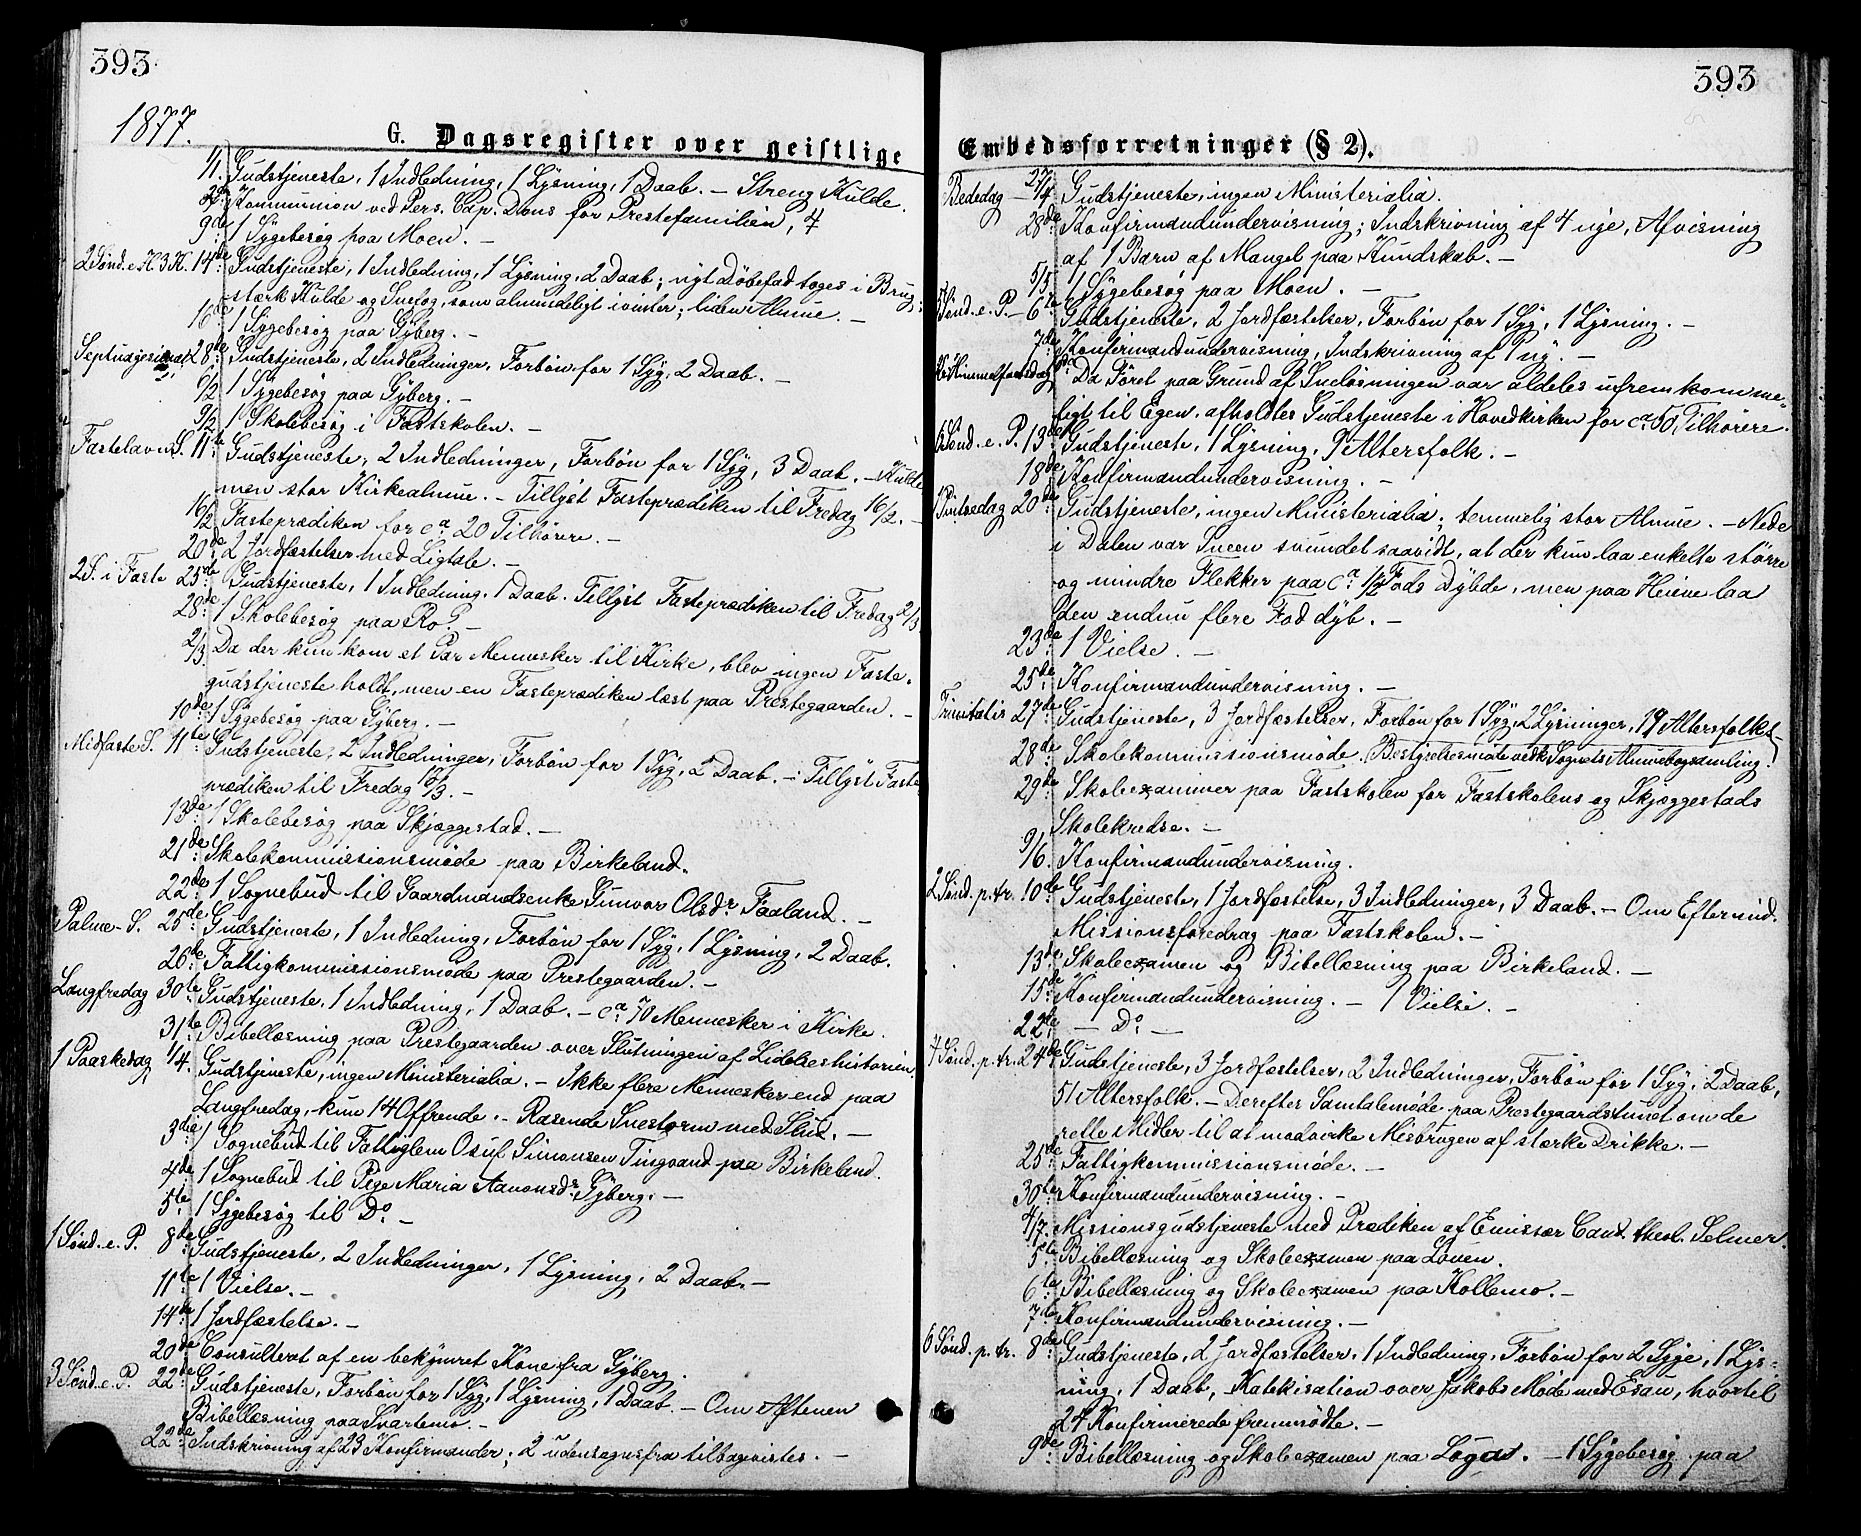 393
1877.
G. Dagsregister over geistlige
1/1. Gudstjeneste, 1 Indledning, 1 Lysning, 1 Daab. – Streng Kulde.
Kommunion ved Pers. Cap. Dons for Prestefamilien, 4
9de 1 Sygebesøg paa Moen. –
2 Sønd. e. H 3 K. 14de Gudstjeneste, 1 Indledning, 1 Lysning, 2 Daab; nyt Døbefad toges i Brug;
stærk Kulde og Snefog, som almindeligt i vinter; liden Almue. –
16de 1 Sygebesøg paa Gyberg. –
Septuagesima 28de Gudstjeneste, 2 Indledninger, Forbøn for 1 Syg, 2 Daab. –
1 Sygebesøg paa Gyberg. –
9/2 1 Skolebesøg i Fastskolen. –
Fastelavns S. 11te Gudstjeneste, 2 Indledninger, Forbøn for 1 Syg, 3 Daab. – Kulde
men stor Kirkealmue. – Tillyst Fasteprædiken til Fredag 16/2. –
16/2 Fasteprædiken for ca 20 Tilhørere. –
20de 2 Jordfæstelser med Ligtale. –
2 S. i Faste 25de Gudstjeneste, 1 Indledning, 1 Daab. Tillyst Fasteprædiken til Fredag 2/3
28de 1 Skolebesøg paa Ro. –
2/3 Da der kun kom et Par Mennesker til Kirke, blev ingen Faste-
gudstjeneste holdt, men en Fasteprædiken læst paa Prestegaarden. –
10de 1 Sygebesøg paa Gyberg. –
Midfaste S. 11te Gudstjeneste, 2 Indledninger, Forbøn for 1 Syg, 2 Daab. – Tillyst Faste
prædiken til Fredag 16/3. –
13de 1 Skolebesøg paa Skjæggestad. –
21de Skolekommissionsmøde paa Birkeland.
22de 1 Sognebud til Gaardmandsenke Gunvor Olsdr Faaland. –
Palme-S. 25de Gudstjeneste, 1 Indledning, Forbøn for 1 Syg, 1 Lysning, 2 Daab.
26de Fattigkommissionsmøde paa Prestegaarden. –
Langfredag 30te Gudstjeneste, 1 Indledning, 1 Daab. – ca 70 Mennesker i Kirke.
31te Bibellæsning paa Prestegaarden over Slutningen af Lidelseshistorien.
1 Paaskedag 1/4. Gudstjeneste, ingen Ministerialia. – Ikke flere Mennesker end paa
Langfredag, kun 14 Offrende. – Rasende Snestorm med Slud. –
3die 1 Sognebud til Fattiglem Osuf Simonsen Tingvand paa Birkeland.
4de 1 Sognebud til Pige Maria Aanonsdr Gyberg. –
5te 1 Sygebesøg til Do –
1 Sønd. e. P. 8de Gudstjeneste, 2 Indledninger, 1 Lysning, 2 Daab. –
11te 1 Vielse. –
14de 1 Jordfæstelse. –
20de Consulteret af en bekymret Kone fra Gyberg.
3 Sønd. e. P. 22de Gudstjeneste, Forbøn for 1 Syg, 1 Lysning, 1 Daab. – Om Aftenen
Bibellæsning paa Svartemo. –
22de Indskrivning af 23 Konfirmander; 2 udensognsfra tilbagevistes. –
393
Embedsforretninger (§ 2).
Bededag – 27/4 Gudstjeneste, ingen Ministerialia.
28de Konfirmandundervisning; Indskrivning af 4 nye, Afvisning
af 1 Barn af Mangel paa Kundskab. –
5/5 1 Sygebesøg paa Moen. –
5 Sønd. e. P. – 6te Gudstjeneste, 2 Jordfæstelser, Forbøn for 1 Syg, 1 Lysning. –
7de Konfirmandundervisning, Indskrivning af 1 ny. –
Kr. Himmelfartsdag Da Føret paa Grund af Sneløsningen var aldeles ufremkomme-
ligt til Egen, afholdtes Gudstjeneste i Hovedkirken for ca 50 Tilhørere.
6 Sønd. e. P. 13de Gudstjeneste, 1 Lysning, 9 Altersfolk. –
18de Konfirmandundervisning. –
1 Pintsedag 20de Gudstjeneste, ingen Ministerialia; temmelig stor Almue. – Nede
i Dalen var Sneen svundet saavidt, at der kun laa enkelte større
og mindre Flekker paa ca 1/2 Fods Dybde, men paa Heiene laa
den endnu flere Fod dyb. –
23de 1 Vielse. –
25de Konfirmandundervisning. –
Trinitatis 27de Gudstjeneste, 3 Jordfæstelser, Forbøn for 1 Syg, 2 Lysninger, 19 Altersfolk
28de Skolekommissionsmøde. Bestyrelsesmøte vedk. Sognets Almuebogsamling.
29de Skoleexaminer paa Fastskolen for Fastskolens og Skjæggestads
Skolekredse. –
9/6. Konfirmandundervisning.
2 Sønd. p. tr. 10de Gudstjeneste, 1 Jordfæstelse, 3 Indledninger, 3 Daab. – Om Eftermid.
Missionsforedrag paa Fastskolen. –
13de Skoleexamen og Bibellæsning paa Birkeland. –
15de Konfirmandundervisning. – 1 Vielse. –
22de – Do –
4 Sønd. p. tr. 24de Gudstjeneste, 3 Jordfæstelser, 2 Indledninger, Forbøn for 1 Syg, 2 Daab,
51 Altersfolk. – Derefter Samtalemøde paa Prestegaardstunet om de
rette Midler til at modvirke Misbrugen af stærke Drikke. –
25de Fattigkommissionsmøde. –
30te Konfirmandundervisning. –
4/7. Missionsgudstjeneste med Prædiken af Emissær Cand. theol. Selmer.
5te Bibellæsning og Skoleexamen paa Louen.
6te Bibellæsning og Skoleexamen paa Kollemo. –
7de Konfirmandundervisning. –
6 Sønd. p. tr. 8de Gudstjeneste, 2 Jordfæstelser, 1 Indledning, Forbøn for 2 Syge, 1 Lys-
ning, 1 Daab, Katekisation over Jakobs Møde med Esau, hvortil
24 Konfirmerede fremmødte. –
9de Bibellæsning og Skoleexamen paa Logav. – 1 Sygebesøg paa